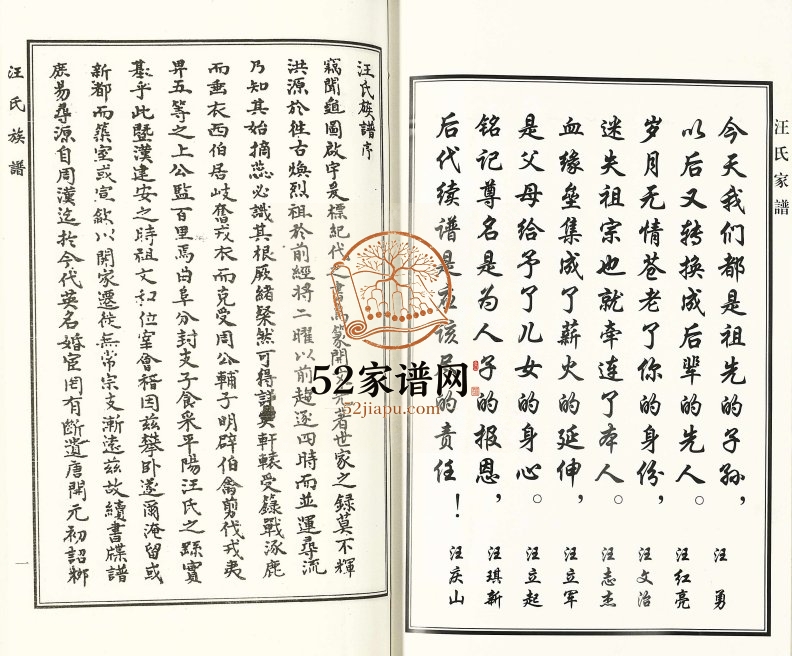 汪氏家譜
今天我们都是祖先的子孙，
以后又转换成后辈的先人。
岁月无情苍老了你的身份，
迷失祖宗也就牵连了本人。
血缘垒集成了薪火的延伸，
是父母给予了儿女的身心。
铭记尊名是为人子的报恩，
后代续谱是应该的责任！
汪勇
汪红亮
汪文治
汪志杰
汪立军
汪立起
汪琪新
汪庆山
汪氏族譜
汪氏族譜序
竊聞龜圖啟宇爰標紀代之書鳥篆開 著世家之錄莫不輝
洪源於徃古煥烈祖於前經將二曜以前趨逐四時而並運尋流
乃知其始摘蕊必識其根厥緒粲然可得詳 軒轅受籙戰涿鹿
而垂衣西伯居岐奮戎衣而克受周公輔子明辟伯禽剪伐戎夷
畀五等之上公監百里焉曲阜分封支子食采平陽汪氏之 寔
基乎此暨漢建安之時祖文和位宰會稽因兹攀卧遂爾淹留或
新都而築室或宣歙以開家遷徙無常宗支漸遠兹故續書牒譜
庶易尋源自周漢迄於今代英名婚宦罔有斷遺唐開元初詔
一
52家谱网
52jiapu.com